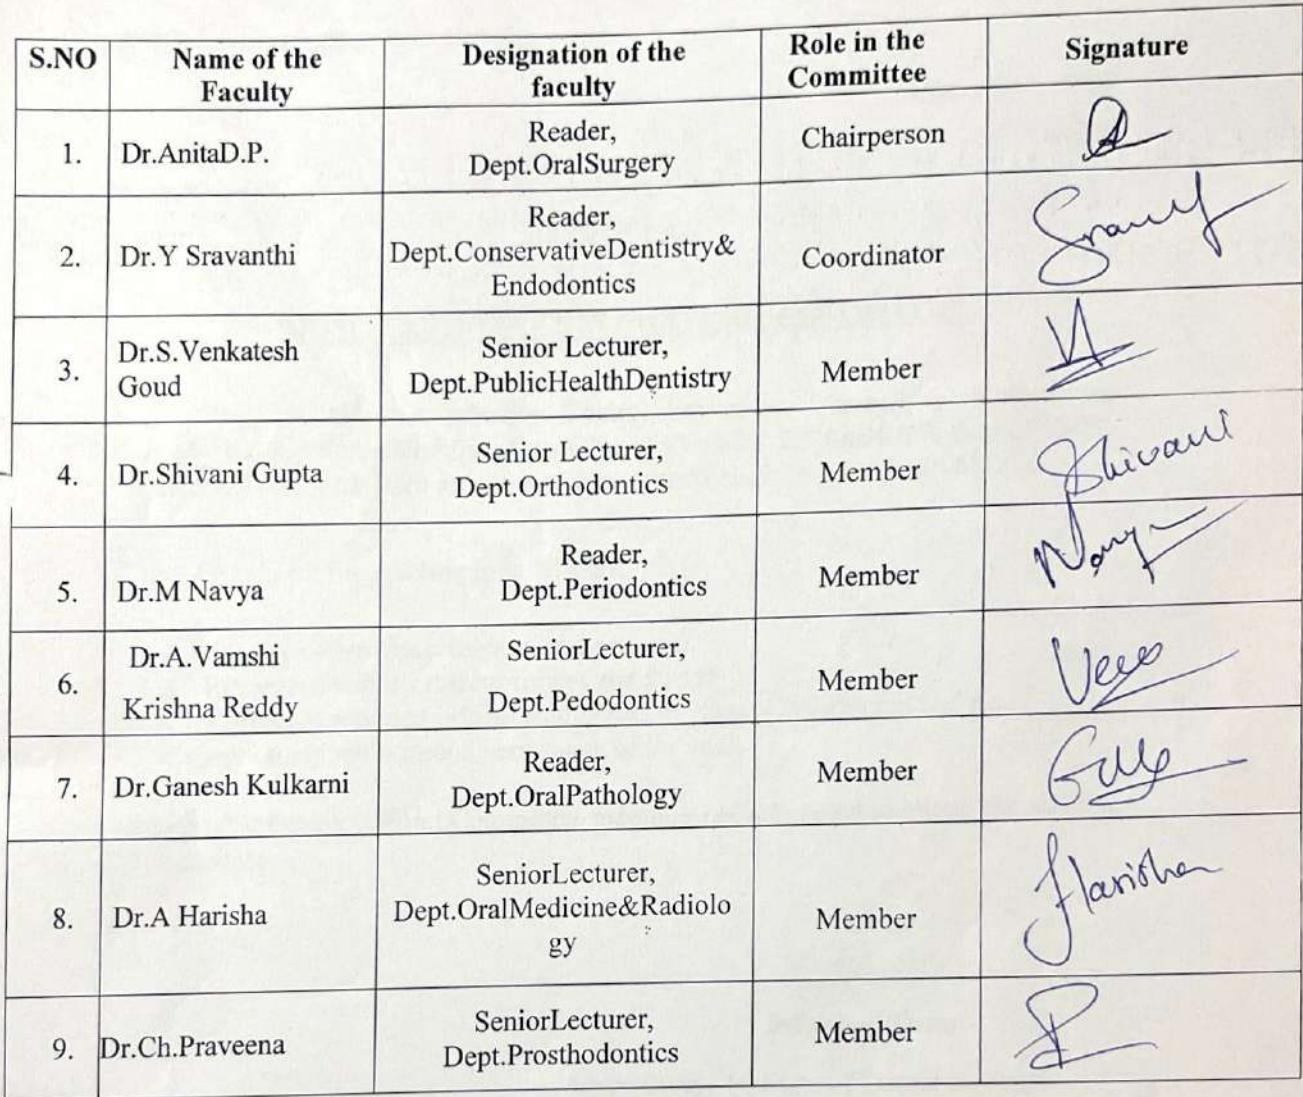 S.NO
Name of the
Faculty
Designation of the
faculty
Role in the
Committee
Signature
1.
Dr.AnitaD.P.
Reader,
Dept.OralSurgery
Chairperson
2.
Dr.Y Sravanthi
Reader,
Dept.ConservativeDentistry&
Endodontics
Coordinator
3.
Dr.S.Venkatesh
Goud
Senior Lecturer,
Dept.PublicHealthDentistry
Member
4.
Dr.Shivani Gupta
Senior Lecturer,
Dept.Orthodontics
Member
Shivani
5.
Dr.M Navya
Reader,
Dept.Periodontics
Member
6.
Dr.A.Vamshi
Krishna Reddy
SeniorLecturer,
Dept.Pedodontics
Member
7.
Dr.Ganesh Kulkarni
Reader,
Dept.OralPathology
Member
8.
Dr.A Harisha
SeniorLecturer,
Dept.OralMedicine&Radiolo
gy
Member
Harisha
9.
Dr.Ch.Praveena
SeniorLecturer,
Dept.Prosthodontics
Member